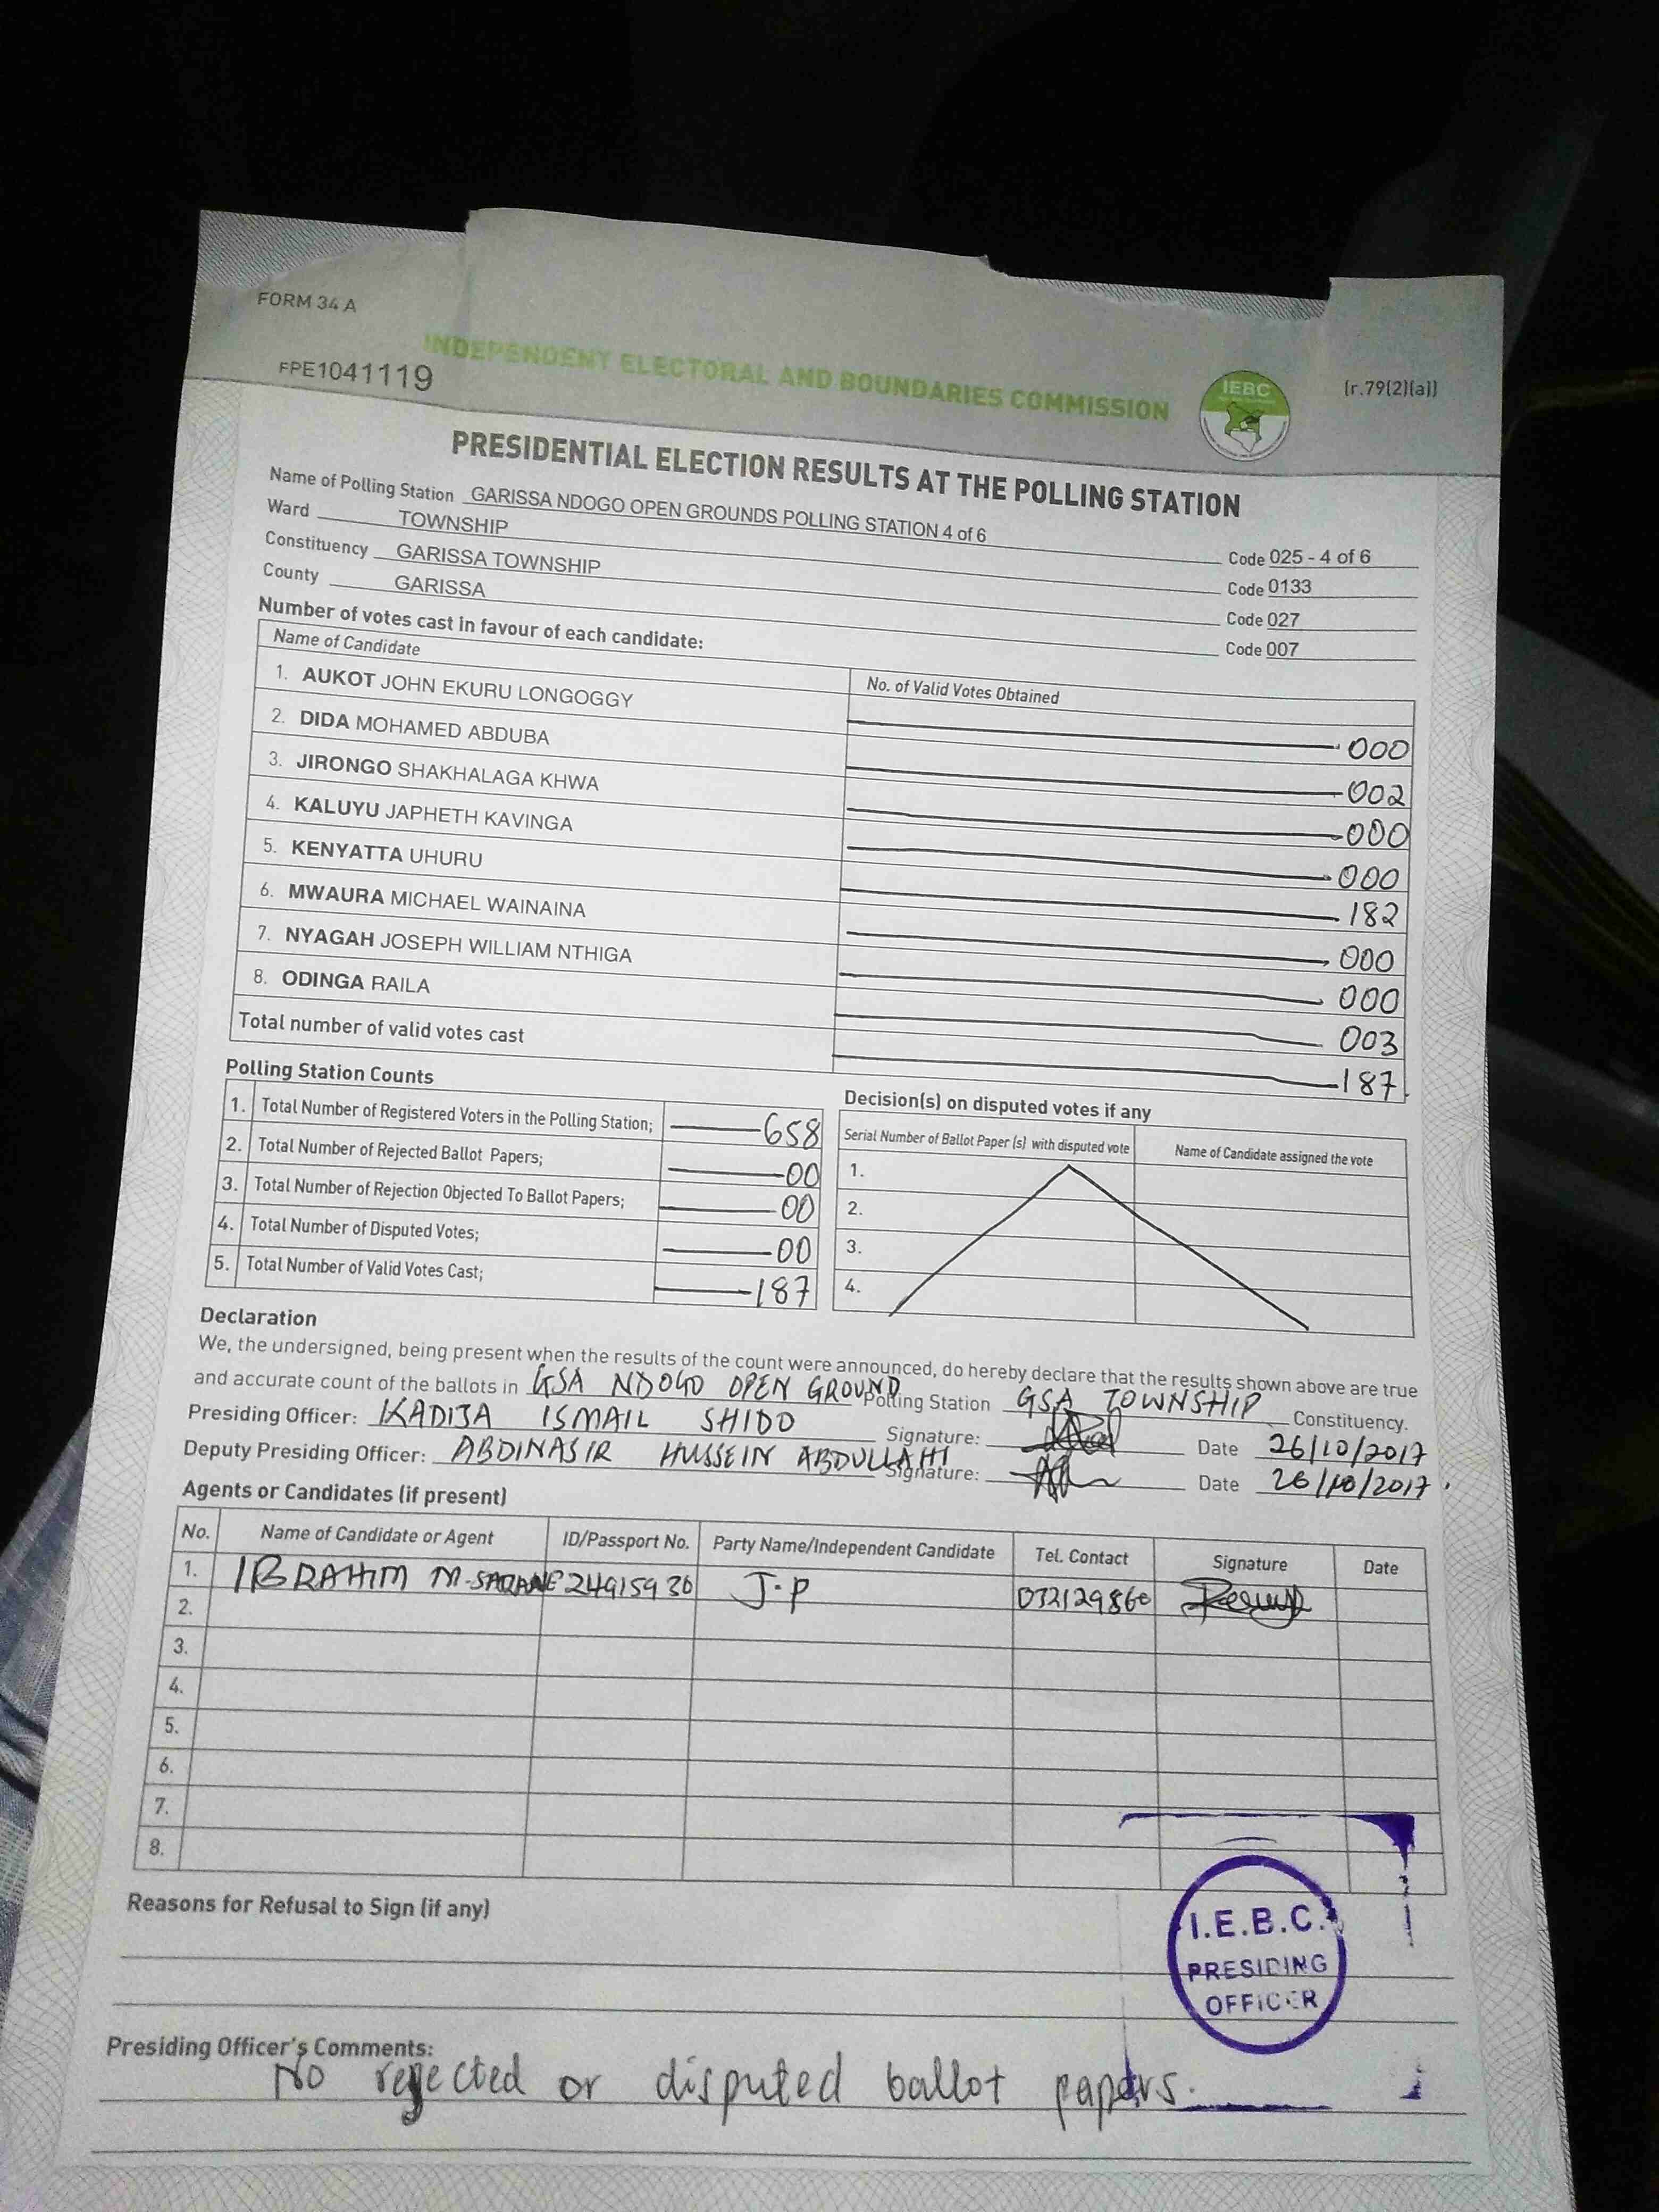 FORM 34 A
INDEPENDENT ELECTORAL AND BOUNDARIES COMMISSION
IEBC
[r.79(2)(a)]
FPE1041119
PRESIDENTIAL ELECTION RESULTS AT THE POLLING STATION
Name of Polling Station GARISSA NDOGO OPEN GROUNDS POLLING STATION 4 of 6 Code 025 - 4 of 6
Ward TOWNSHIP Code 0133
Constituency GARISSA TOWNSHIP Code 027
County GARISSA Code 007
Number of votes cast in favour of each candidate:
Name of Candidate No. of Valid Votes Obtained
1. AUKOT JOHN EKURU LONGOGGY 000
2. DIDA MOHAMED ABDUBA 002
3. JIRONGO SHAKHALAGA KHWA 000
4. KALUYU JAPHETH KAVINGA 000
5. KENYATTA UHURU 182
6. MWAURA MICHAEL WAINAINA 000
7. NYAGAH JOSEPH WILLIAM NTHIGA 000
8. ODINGA RAILA 003
Total number of valid votes cast 187
Polling Station Counts
1. Total Number of Registered Voters in the Polling Station; 658
2. Total Number of Rejected Ballot Papers; 00
3. Total Number of Rejection Objected To Ballot Papers; 00
4. Total Number of Disputed Votes; 00
5. Total Number of Valid Votes Cast; 187
Decision(s) on disputed votes if any
Serial Number of Ballot Paper (s) with disputed vote Name of Candidate assigned the vote
1.
2.
3.
4.
Declaration
We, the undersigned, being present when the results of the count were announced, do hereby declare that the results shown above are true
and accurate count of the ballots in GSA NDOGO OPEN GROUND Polling Station GSA TOWNSHIP Constituency.
Presiding Officer: KADIJA ISMAIL SHIDO Signature: Date 26/10/2017
Deputy Presiding Officer: ABDINASIR HUSSEIN ABDULLAHI Signature: Date 26/10/2017.
Agents or Candidates (if present)
No. Name of Candidate or Agent ID/Passport No. Party Name/Independent Candidate Tel. Contact Signature Date
1. IBRAHIM 24915930 J.P
2.
3.
4.
5.
6.
7.
8.
Reasons for Refusal to Sign (if any)
I.E.B.C.
PRESIDING
OFFICER
Presiding Officer's Comments:
No rejected or disputed ballot papers.